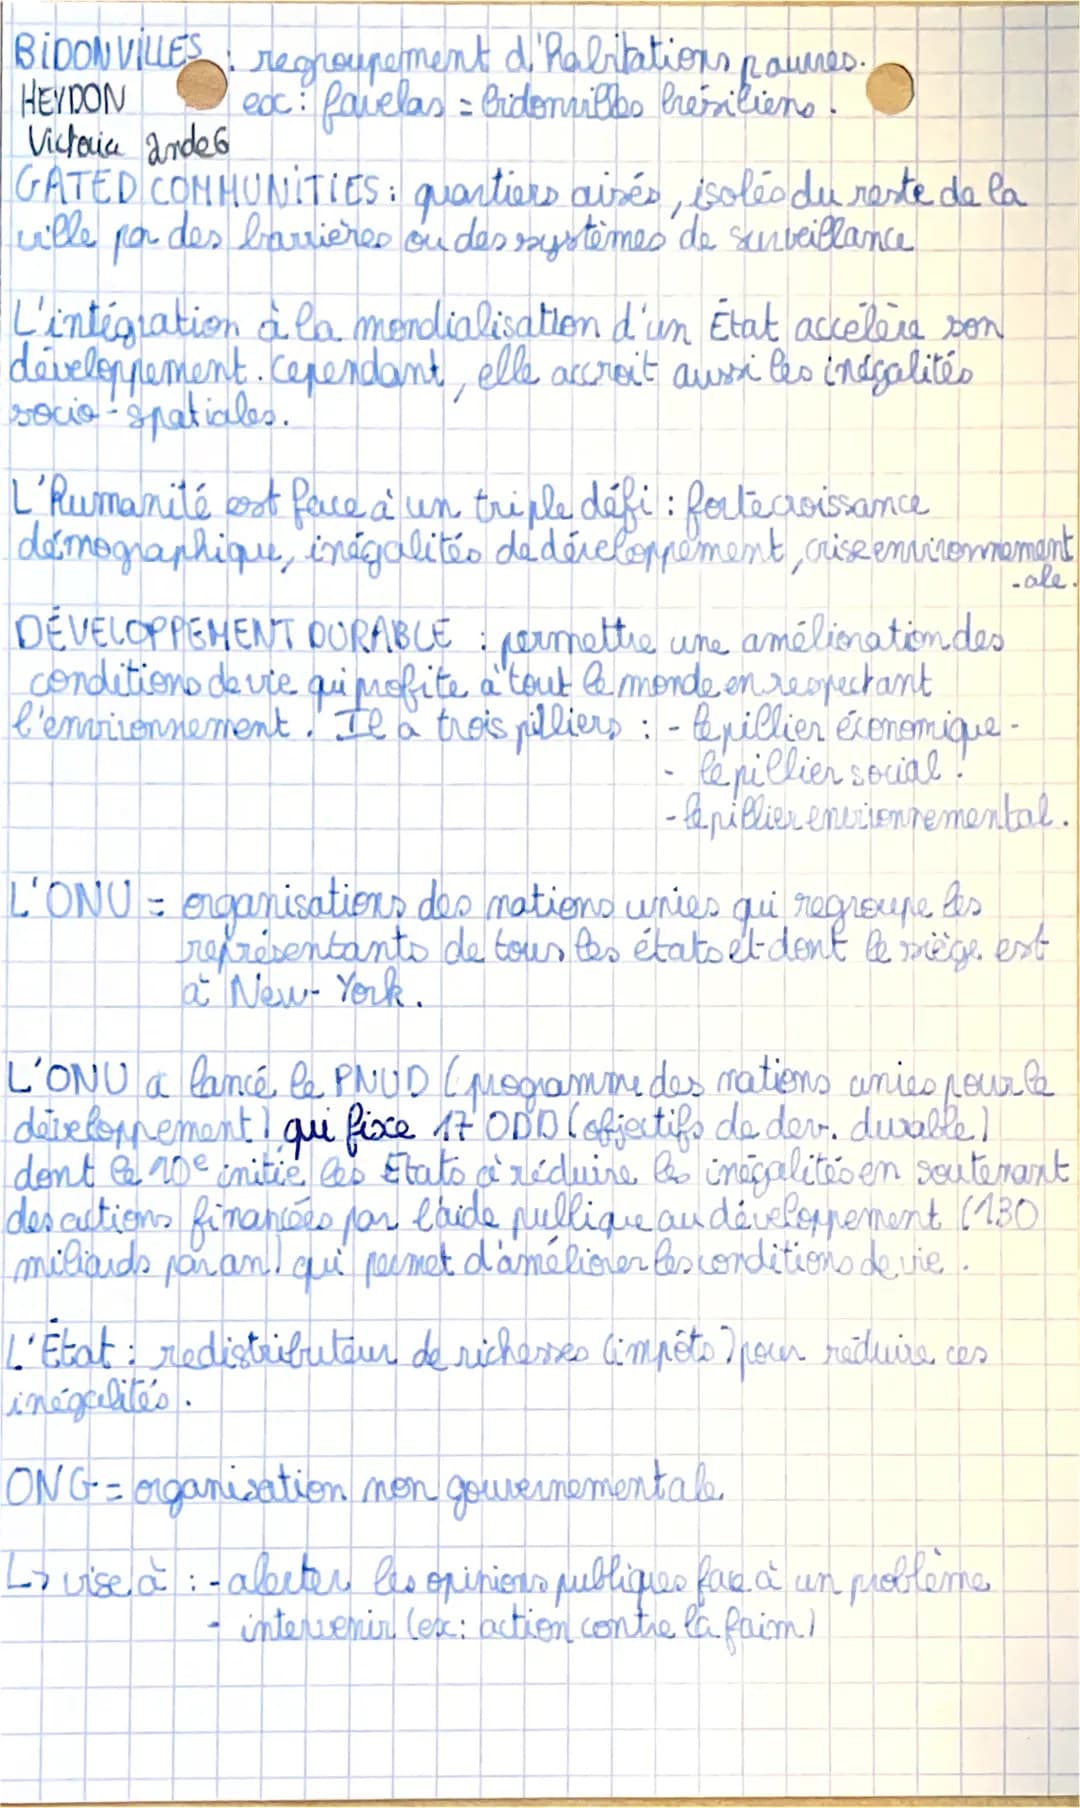 BIDONVILLES : regroupement d'habitations pauvres.
HEYDON ex : favelas = bidonvilles brésiliens.
Victoria 2nde6
GATED COMMUNITIES : quartiers aisés, isolés du reste de la
ville par des barrières ou des systèmes de surveillance
L'intégration à la mondialisation d'un État accélère son
développement. Cependant, elle accroit aussi les inégalités
socio-spatiales.
L'humanité est face à un triple défi : forte croissance
démographique, inégalités de développement, crise environnement
-ale.
DÉVELOPPEMENT DURABLE : permettre une amélioration des
conditions de vie qui profite à tout le monde en respectant
l'environnement. Il a trois pilliers : - le pillier économique -
- le pillier social.
- le pillier environnemental.
L'ONU = organisations des nations unies qui regroupe les
représentants de tous les états et dont le siège est
à New-York.
L'ONU a lancé le PNUD (programme des nations unies pour le
développement) qui fixe 17 ODD (objectifs de dev. durable)
dont le 10e initie les États à réduire les inégalités en soutenant
des actions financées par l'aide publique au développement (130
miliards par an) qui permet d'améliorer les conditions de vie.
L'État : redistributeur de richesses (impôts) pour réduire ces
inégalités.
ONG = organisation non gouvernementale
↳ vise à : - alerter les opinions publiques face à un problème
- intervenir (ex: action contre la faim)